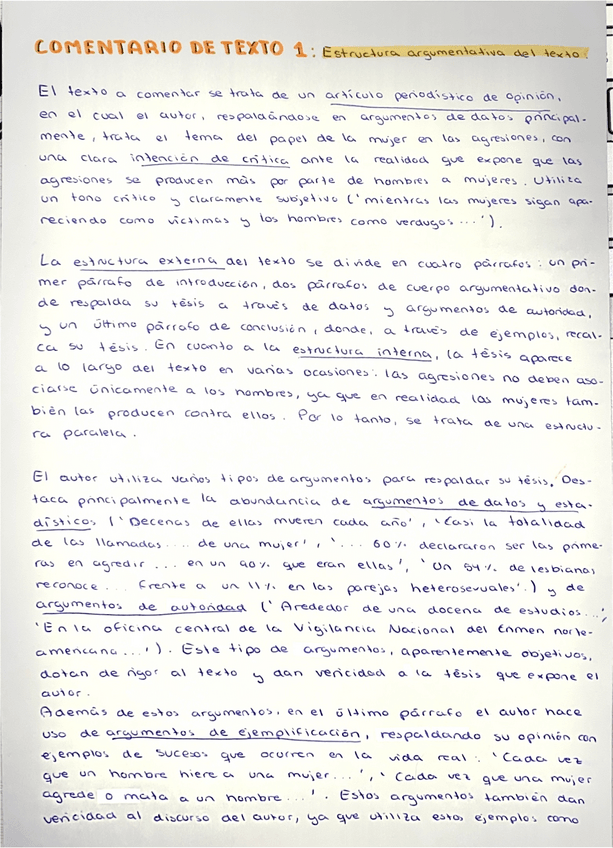 COMENTARIO DE TEXTO 1: Estructura argumentativa del texto.
El texto a comentar se trata de un artículo periodístico de opinión,
en el cual el autor, respaldándose en argumentos de datos principal-
mente, trata el tema del papel de la mujer en las agresiones, con
una clara intención de crítica ante la realidad que expone que las
agresiones se producen más por parte de hombres a mujeres. Utiliza
un tono crítico y claramente subjetivo ('mientras las mujeres sigan apa-
reciendo como víctimas y los hombres como verdugos...').
La estructura externa del texto se divide en cuatro párrafos: un pri-
mer párrafo de introducción, dos párrafos de cuerpo argumentativo don-
de respalda su tésis a través de datos y argumentos de autoridad,
y un último párrafo de conclusión, donde, a través de ejemplos, recal-
ca su tésis. En cuanto a la estructura interna, la tésis aparece
a lo largo del texto en varias ocasiones: las agresiones no deben aso-
ciarse únicamente a los hombres, ya que en realidad las mujeres tam-
bién las producen contra ellos. Por lo tanto, se trata de una estructu-
ra paralela.
El autor utiliza varios tipos de argumentos para respaldar su tésis. Des-
taca principalmente la abundancia de argumentos de datos y esta-
dísticos ('Decenas de ellas mueren cada año', 'Casi la totalidad
de las llamadas.... de una mujer', '... 60% declararon ser las prime-
ras en agredir ... en un 40% que eran ellas', 'Un 54% de lesbianas
reconoce... frente a un 11% en las parejas heterosexuales'.) y de
argumentos de autoridad ('Arededor de una docena de estudios...',
'En la oficina central de la Vigilancia Nacional del Crimen norte-
americana...'). Este tipo de argumentos, aparentemente objetivos,
dotan de rigor al texto y dan vericidad a la tésis que expone el
autor.
Además de estos argumentos, en el último párrafo el autor hace
uso de argumentos de ejemplificación, respaldando su opinión con
ejemplos de sucesos que ocurren en la vida real: 'Cada vez
que un hombre hiere a una mujer...', 'Cada vez que una mujer
agrede o mata a un hombre...'. Estos argumentos también dan
vericidad al discurso del autor, ya que utiliza estos ejemplos como